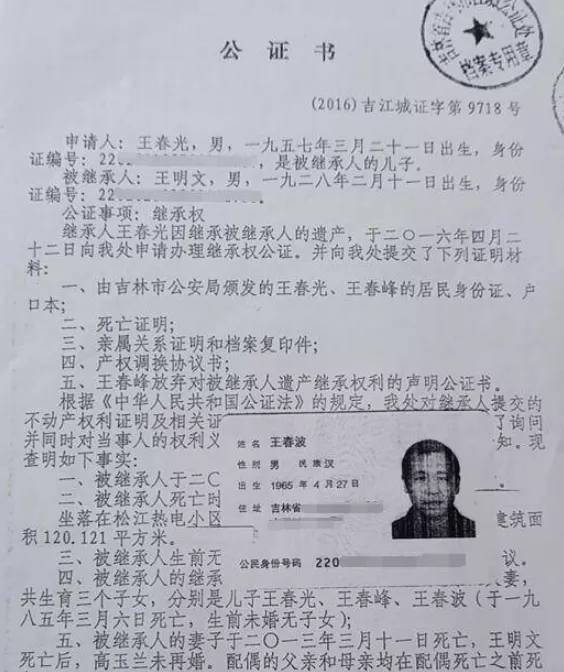 公证书
吉林省吉 公证处
档案专用章
(2016)吉江城证字第 9718 号
申请人：王春光，男，一九五七年三月二十一日出生，身份
证编号：220 ，是被继承人的儿子。
被继承人：王明文，男，一九二八年二月十一日出生，身份
证编号：220
公证事项：继承权
继承人王春光因继承被继承人的遗产，于二〇一六年四月二
十二日向我处申请办理继承权公证。并向我处提交了下列证明材
料：
一、由吉林市公安局颁发的王春光、王春峰的居民身份证、户
口本；
二、死亡证明；
三、亲属关系证明和档案复印件；
四、产权调换协议书；
五、王春峰放弃对被继承人遗产继承权利的声明公证书。
根据《中华人民共和国公证法》的规定，我处对继承人提交的
不动产权利证明及相关证 了询问
并同时对当事人的权利义 知。现
查明如下事实：
一、被继承人于二〇 。
二、被继承人死亡时
坐落在松江热电小区 建筑面
积 120.121 平方米。
三、被继承人生前无 议。
四、被继承人的继承 妻，
共生育三个子女，分别是儿子王春光、王春峰、王春波（于一九
八五年三月六日死亡，生前未婚无子女）；
五、被继承人的妻子于二〇一三年三月十一日死亡，王明文
死亡后，高玉兰未再婚。配偶的父亲和母亲均在配偶死亡之前死
姓名 王春波
性别 男 民族 汉
出生 1965 年 4 月 27 日
住址 吉林省
公民身份号码 220